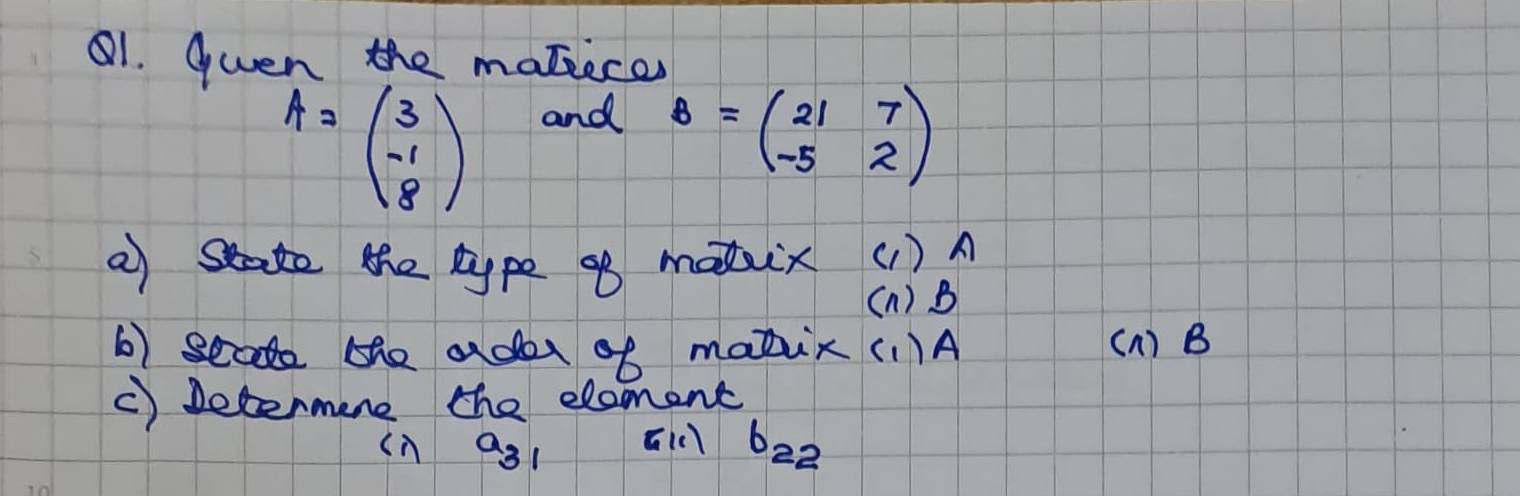 Q1. Given the matrices
A = (3 -1 8) and B = (21 7 -5 2)
a) State the type of matrix (i) A
(ii) B
b) State the order of matrix (i) A (ii) B
c) Determine the element
(i) a31 (ii) b22